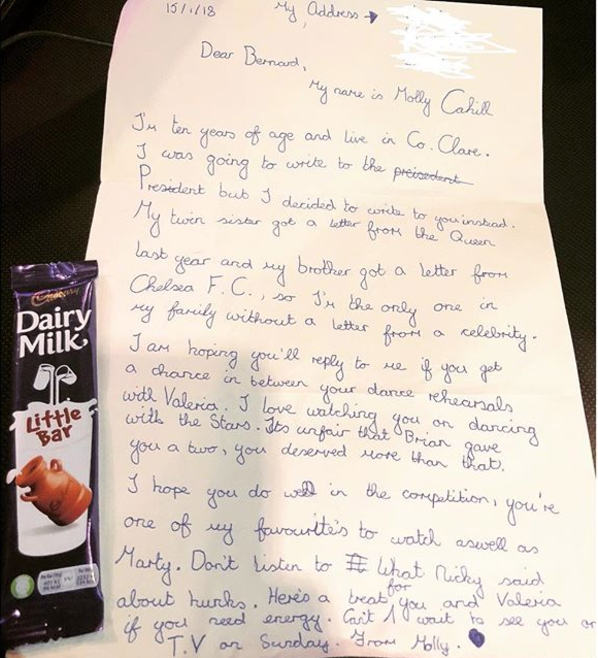 15/1/18
My Address
Dear Bernard,
My name is Molly Cahill
I'm ten years of age and live in Co. Clare.
I was going to write to the preisedent
President but I decided to write to you instead.
My twin sister got a letter from the Queen
last year and my brother got a letter from
Chelsea F.C., so I'm the only one in
my family without a letter from a celebrity.
I am hoping you'll reply to me if you get
a chance in between your dance rehearsals
with Valeria. I love watching you on dancing
with the Stars. Its unfair that Brian gave
you a two, you deserved more than that.
I hope you do well in the competition, you're
one of my favourite's to watch aswell as
Marty. Don't listen to what Nicky said
about hunks. Here's a treat for you and Valeria
if you need energy. Can't wait to see you on
T.V on Sunday. From Molly.
Cadbury
Dairy
Milk
Little
Bar